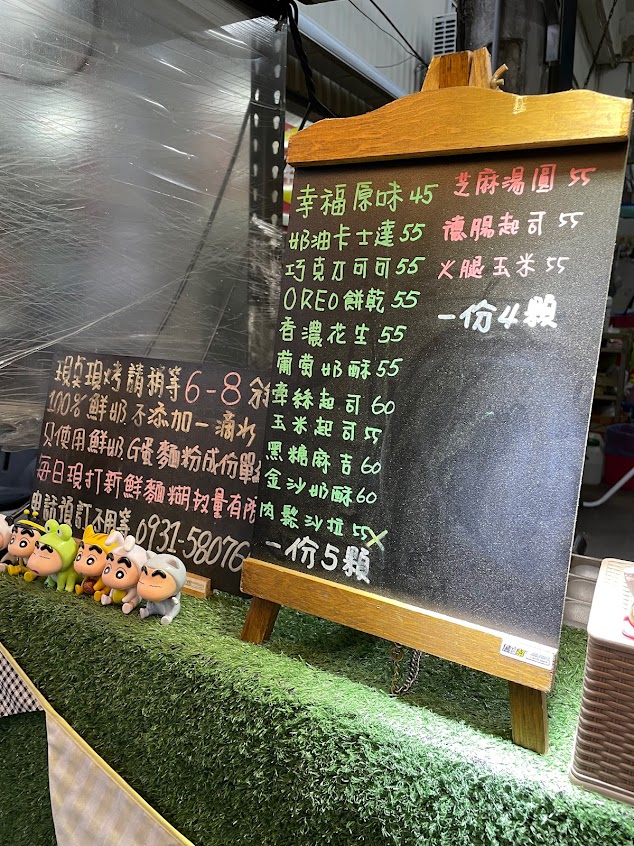 幸福原味 45
奶油卡士達 55
巧克力可可 55
OREO餅乾 55
香濃花生 55
葡萄奶酥 55
牽絲起司 60
玉米起司 55
黑糖麻吉 60
金沙奶酥 60
肉鬆沙拉 55 X
一份5顆
芝麻湯圓 55
德腸起司 55
火腿玉米 55
一份4顆
現點現烤請稍等6-8分
100%鮮奶不添加一滴水
只使用鮮奶G蛋麵粉成份單
每日現打新鮮麵糊數量有限
電話預訂不用等 0931-58076